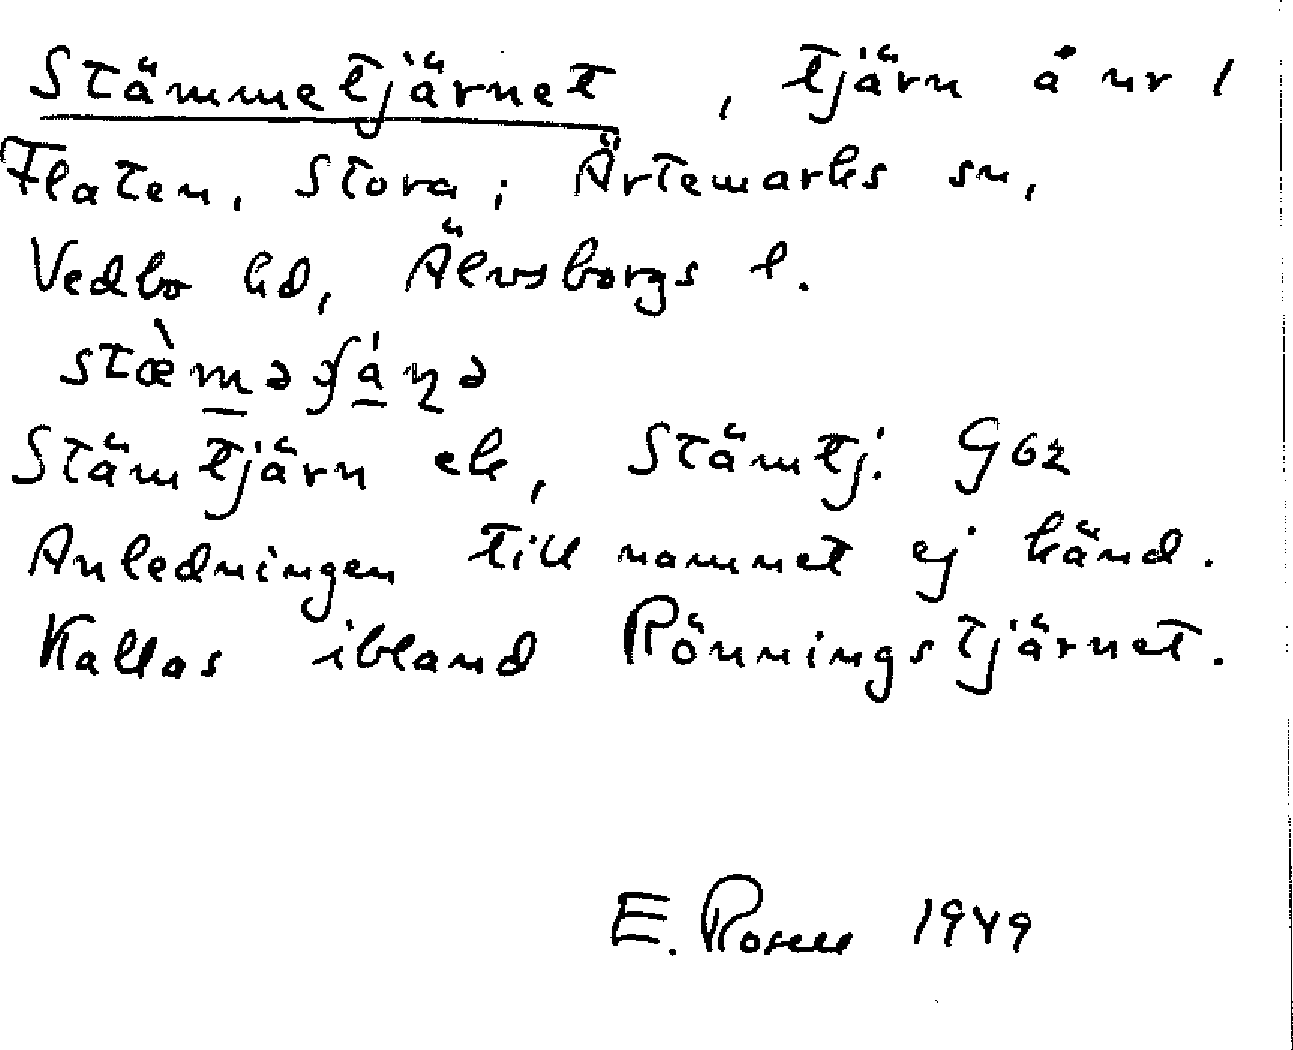 Stämmetjärnet, tjärn å nr 1
Flaten, Stora; Ärtemarks sn,
Vedbo hd, Älvsborgs l.
Stämtjärn ek, Stämtj. G62
Anledningen till namnet ej känd.
Kallas ibland Rönningstjärnet.
E. Rosell 1949